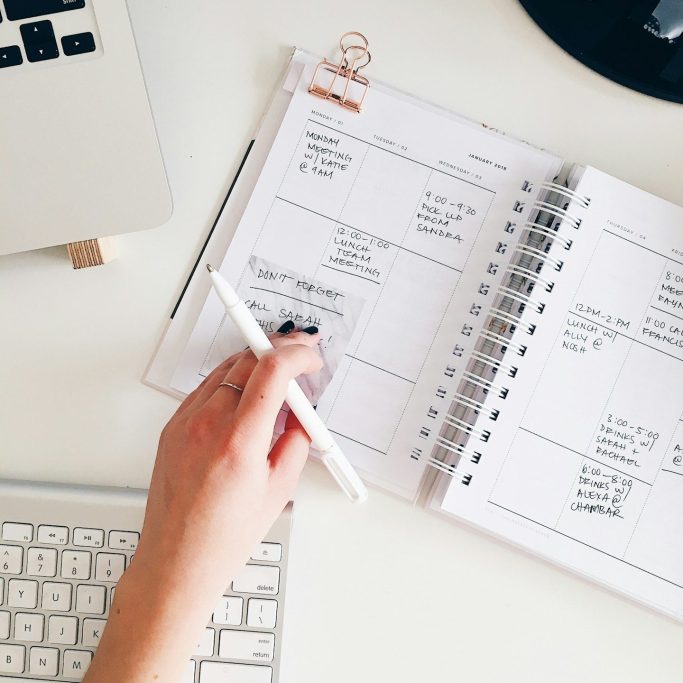 MONDAY / 01
MONDAY
MEETING
W/ KATIE
@ 9AM
TUESDAY / 02
12:00-1:00
LUNCH
TEAM
MEETING
JANUARY 2018
WEDNESDAY / 03
9:00-9:30
PICK LLP
FROM
SANDRA
DON'T FORGET
CALL SARAH
THIS
!
THURSDAY / 04
12PM-2PM
LUNCH W/
ALLY @
NOSH
3:00-5:00
DRINKS W/
SARAH +
RACHAEL
6:00-8:00
DRINKS W/
ALEXA @
CHAMBAR
8:0
MEE
11:00 CA
FRANCIS
6
7
8
9
Y
U
I
H
J
K
B
N
M
delete
enter
return